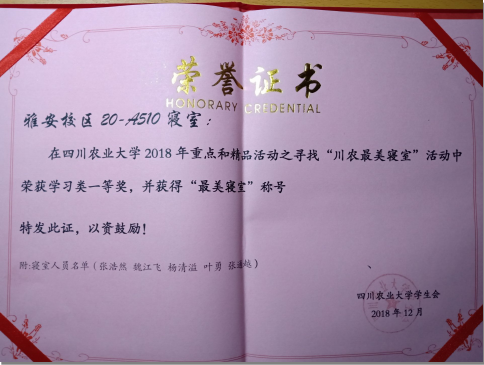 荣誉证书
HONORARY CREDENTIAL
雅安校区 20-A510 寝室：
在四川农业大学 2018 年重点和精品活动之寻找“川农最美寝室”活动中
荣获学习类一等奖，并获得“最美寝室”称号
特发此证，以资鼓励！
附:寝室人员名单（张浩然 魏江飞 杨清溢 叶勇 张 越）
四川农业大学学生会
2018 年 12 月